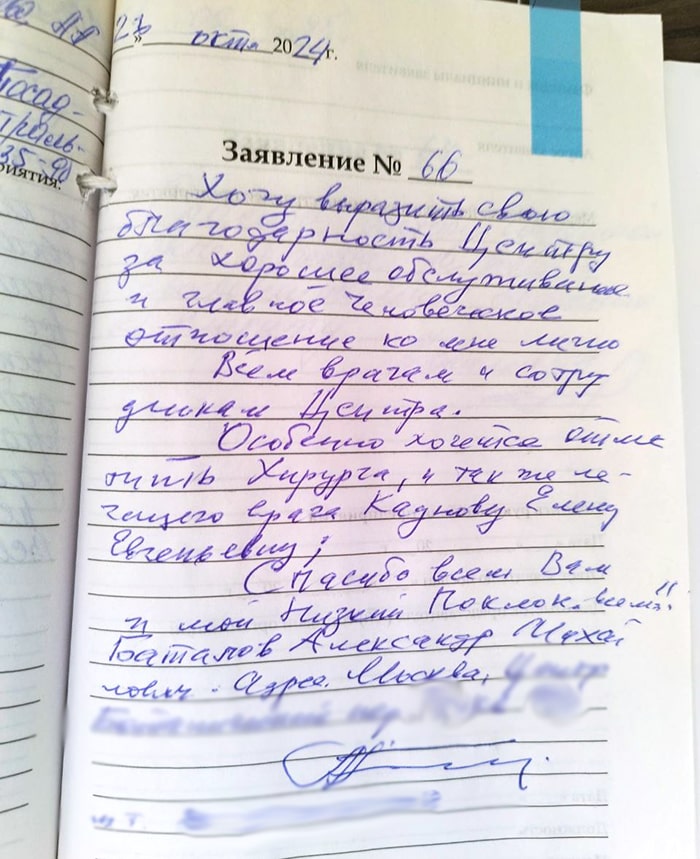 27 окт. 2024 г.
Заявление № 66
Хочу выразить свою
благодарность Центру
за хорошее обслуживание
и главное человеческое
отношение ко мне лично
Всем врачам и сотру
дникам Центра.
Особенно хочется отме
тить Хирурга, и так же ле-
чащего врача Каднову Елену
Евгеньевну;
Спасибо всем Вам
и мой Низкий Поклон. всем!!
Баталов Александр Михай
лович. Адрес. Москва,
пер.
м. т.
Посад-
35-90
риятия: